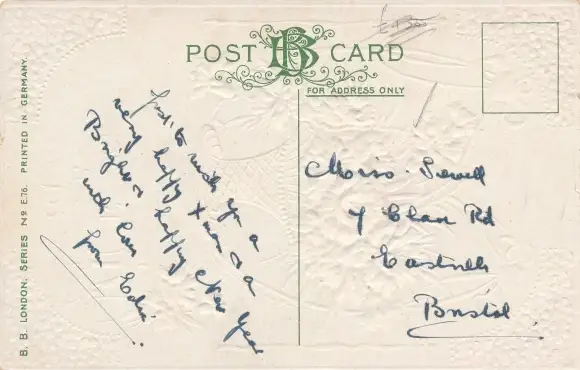 POST BB CARD
FOR ADDRESS ONLY
B. B. LONDON. SERIES Nº E.76. PRINTED IN GERMANY.
Just to wish you a
very happy Xmas & a
Bright & happy New Year
with love
from Edie.
Miss. Sewell
7 Clare Rd
Eastville
Bristol.